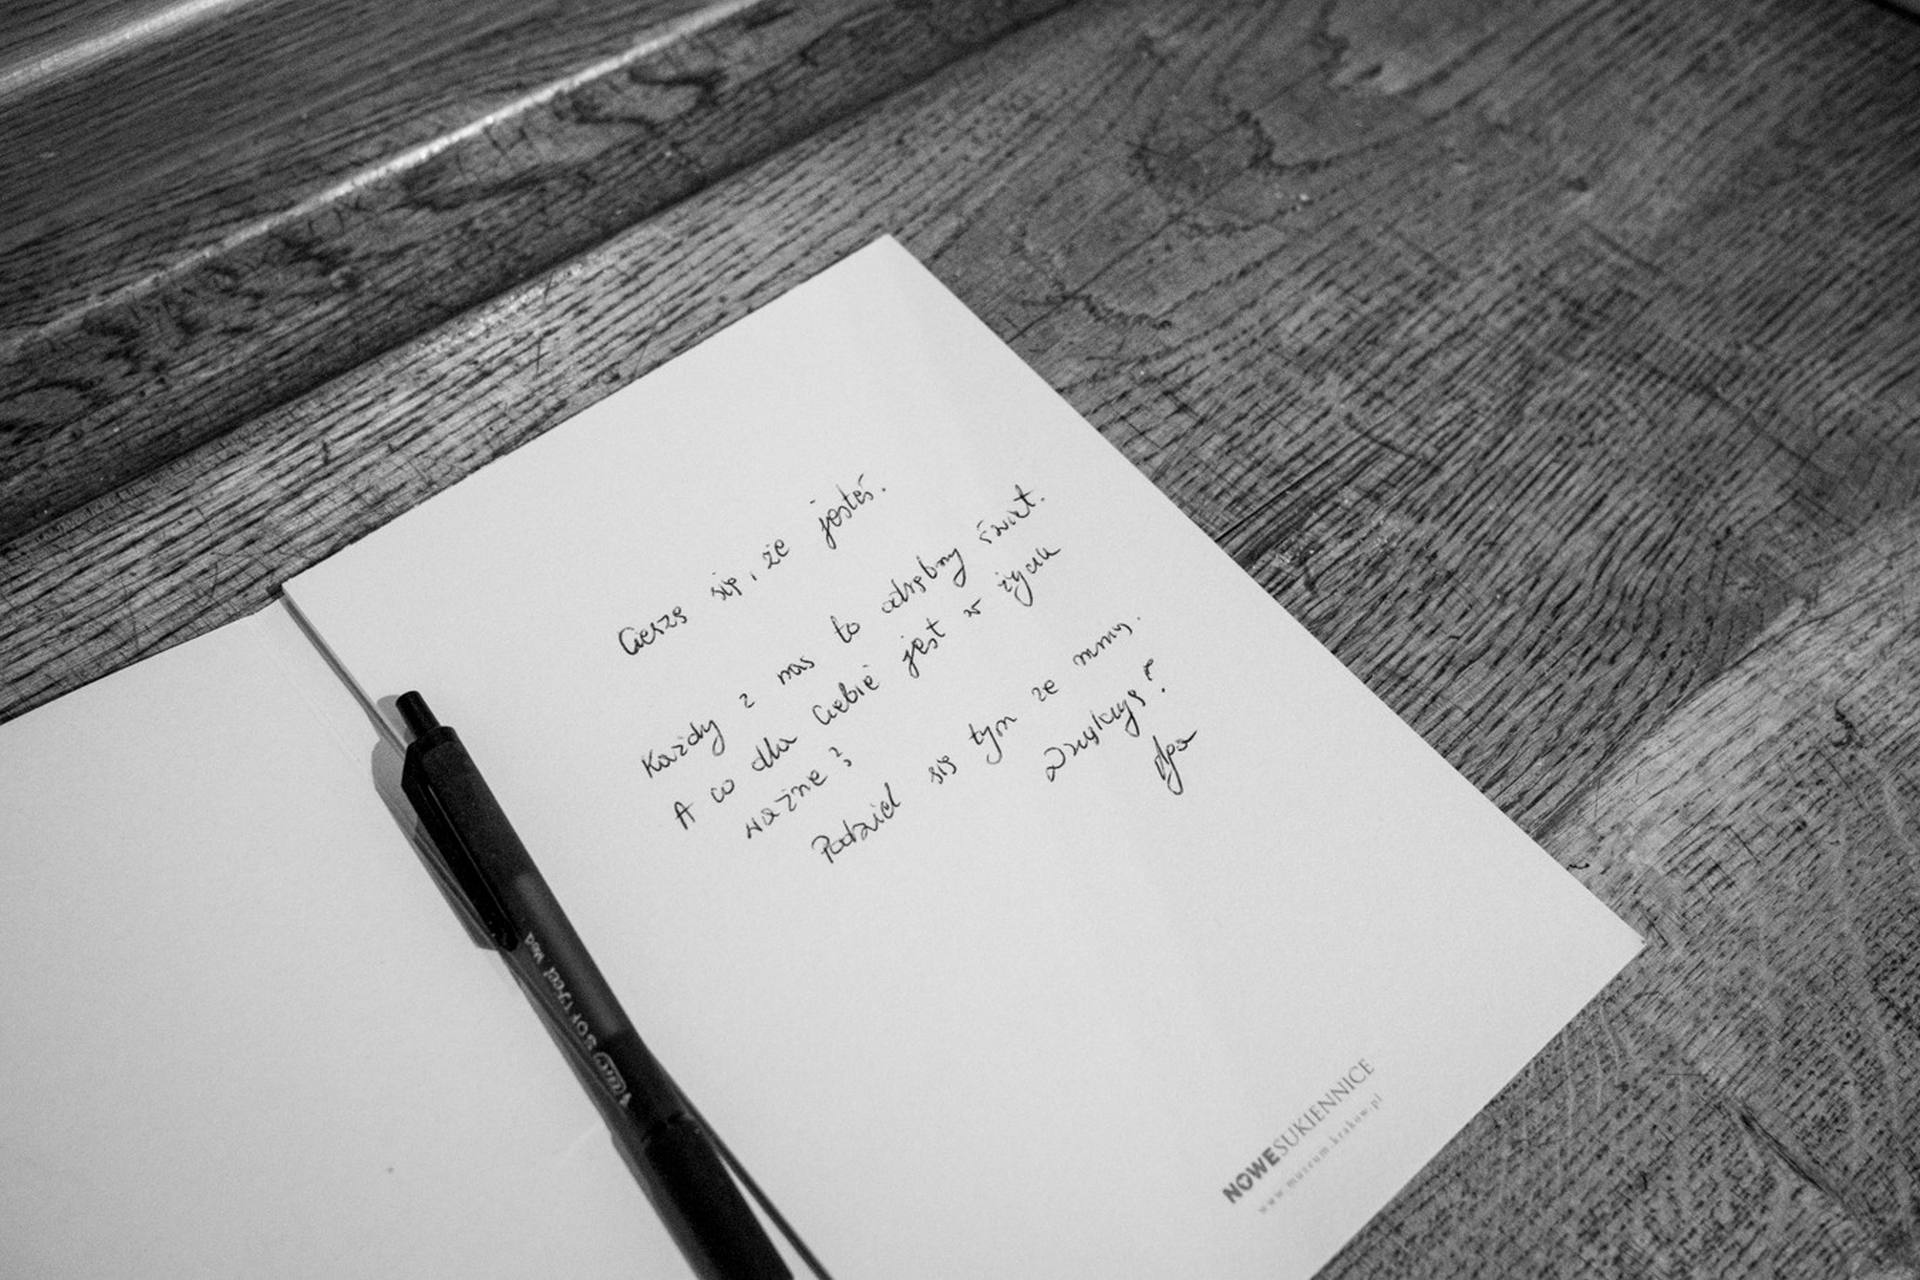 Cieszę się, że jesteś.
Każdy z nas to odrębny świat.
A co dla Ciebie jest w życiu
ważne?
Podziel się tym ze mną.
Dziękuję!
NOWESUKIENNICE
www.muzeum.krakow.pl
SOFTFeel Med